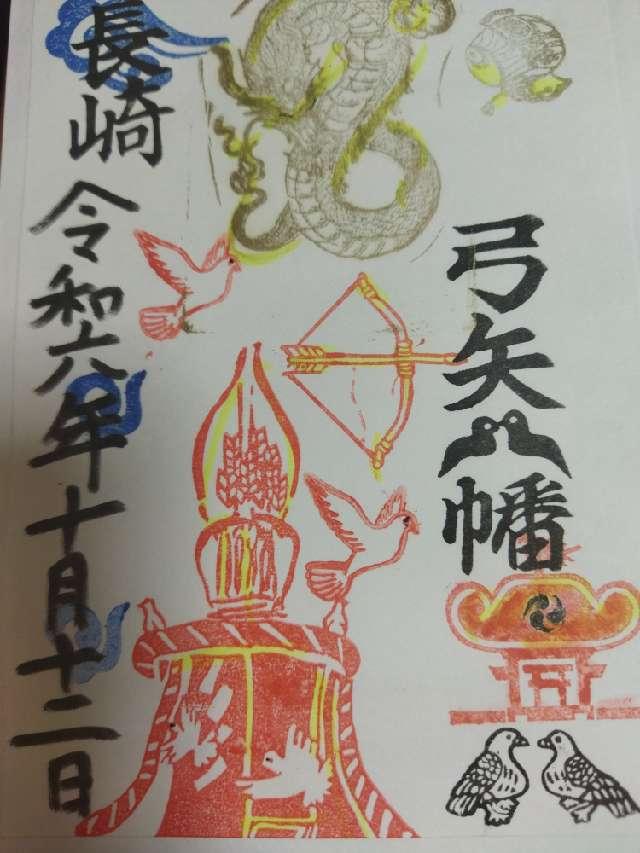 弓矢八幡
長崎
令和六年十月十二日